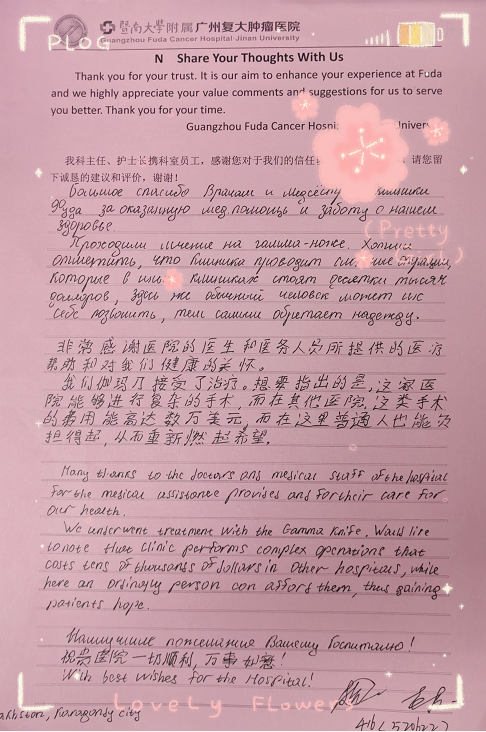 PLOG
暨南大學附属广州复大肿瘤医院
Guangzhou Fuda Cancer Hospital·Jinan University
N Share Your Thoughts With Us
Thank you for your trust. It is our aim to enhance your experience at Fuda
and we highly appreciate your value comments and suggestions for us to serve
you better. Thank you for your time.
Guangzhou Fuda Cancer Hospi
我科主任、护士长携科室员工,感谢您对于我们的信任 请您留
下诚恳的建议和评价,谢谢!
Большое спасибо Врачам и клиники
Фуда за оказанную мед.помощь и заботу о нашем
здоровье.
(Pretty
Проходили лечение на гамма-ноже. Хотим
отметить, что клиника проводит операции,
Которые в клиниках стоят десятки тысяч
долларов, здесь же обычный человек может их
себе позволить, тем самым обретает надежду.
非常感谢医院的医生和医务人员所提供的医疗
帮助和对我们健康的关怀。
我们伽玛刀接受了治疗。想要指出的是,这家医
院能够进行复杂的手术,而在其他医院,这类手术
的费用能高达数万美元,而在这里普通人也能负
担得起,从而重新燃起希望。
Many thanks to the doctors and medical staff of the hospital
for the medical assistance provises and for their care for
our health.
We underwent treatment with the Gamma Knife. Would like
to note that clinic performs complex operations that
costs tens of thousands of dollars in other hospitals, while
here an ordinary person can afford them, thus gaining
patients hope.
Наилучшие пожелания Вашему Госпиталю!
祝贵医院一切顺利,万事如意!
With best wishes for the Hospital!
Lovely Flowers
Karagandy city